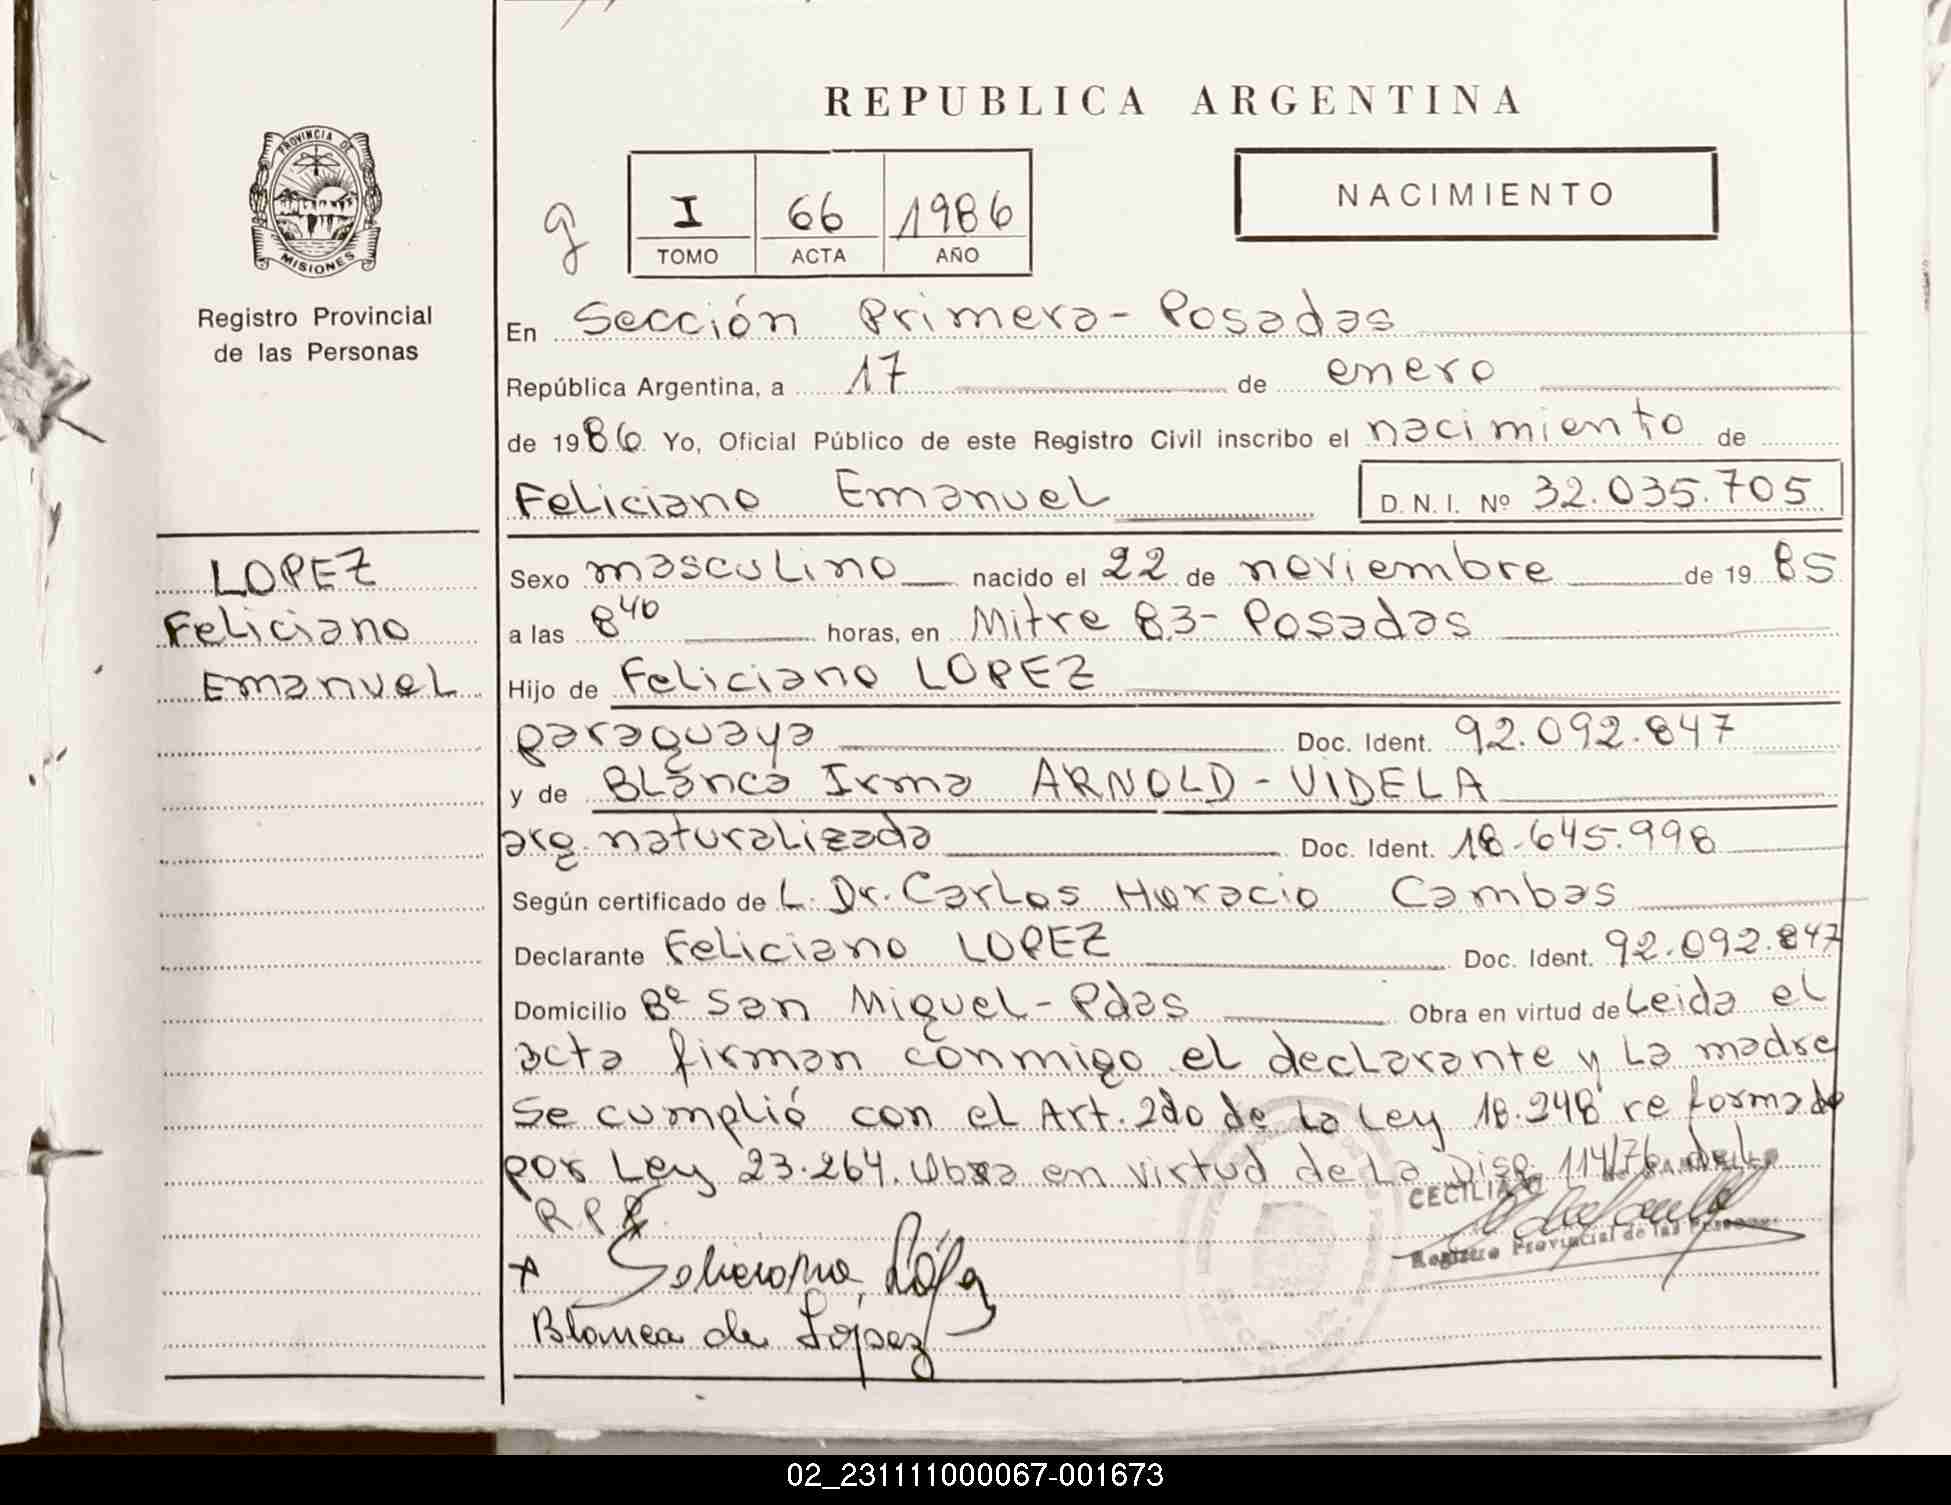 REPUBLICA ARGENTINA
PROVINCIA DE
MISIONES
Registro Provincial
de las Personas
g
I 66 1986
TOMO ACTA AÑO
NACIMIENTO
En Sección Primera - Posadas
República Argentina, a 17 de enero
de 1986. Yo, Oficial Público de este Registro Civil inscribo el nacimiento de
Feliciano Emanuel D. N. I. Nº 32.035.705
LOPEZ
Feliciano
Emanuel
Sexo masculino nacido el 22 de noviembre de 1985
a las 8 40 horas, en Mitre 83 - Posadas
Hijo de Feliciano LOPEZ
paraguaya Doc. Ident. 92.092.847
y de Blanca Irma ARNOLD - VIDELA
arg. naturalizada Doc. Ident. 18.645.998
Según certificado de L. Dr. Carlos Horacio Cambas
Declarante Feliciano LOPEZ Doc. Ident. 92.092.847
Domicilio Bº San Miguel - Pdas Obra en virtud de Leida el
acta firman conmigo el declarante y la madre
Se cumplió con el Art. 2do de la Ley 18.248 reformado
por Ley 23.264. Obra en virtud de la Disp. 114/76 del
R.P.P.
CECILIA
Registro Provincial de las Personas
Feliciano López
Blanca de López
02_231111000067-001673